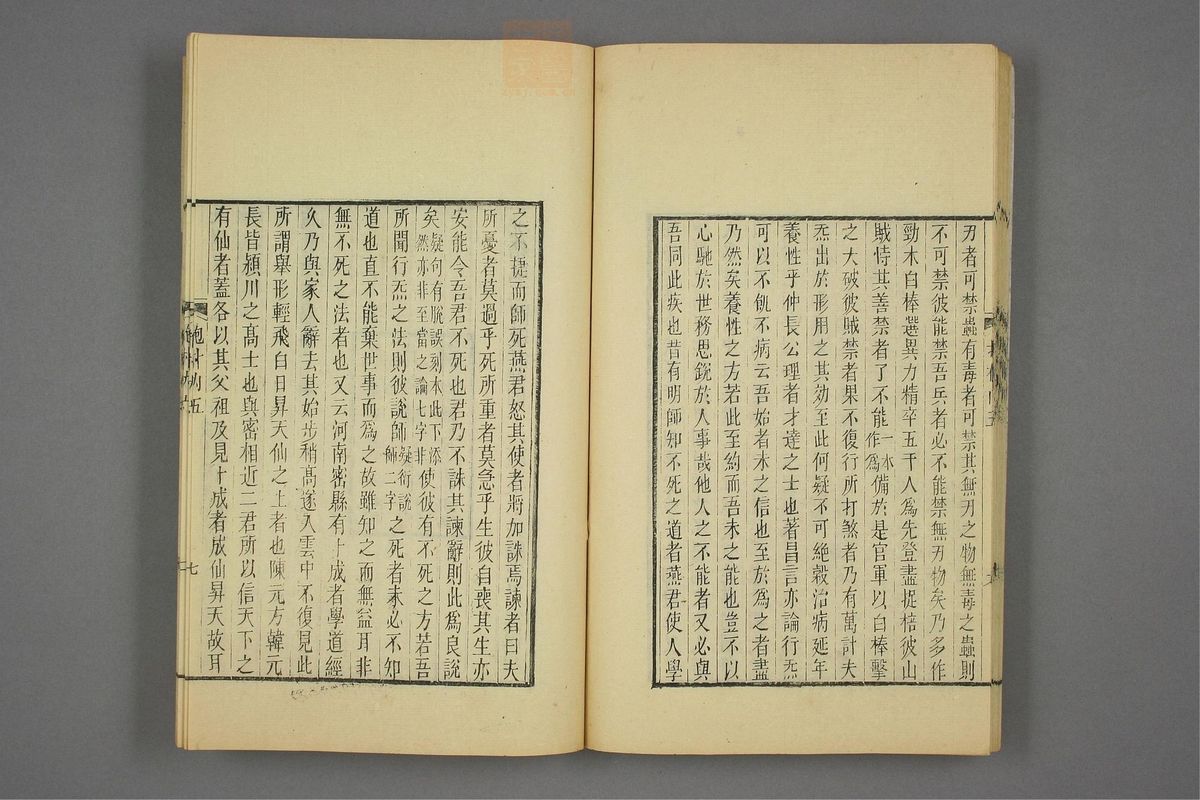 刃者可禁蟲有毒者可禁其無刃之物無毒之蟲則
不可禁彼能禁吾兵者必不能禁無刃物矣乃多作
勁木白棒選異力精卒五千人爲先登盡捉棓彼山
賊恃其善禁者了不能作一本爲備於是官軍以白棒擊
之大破彼賊禁者果不復行所打煞者乃有萬計夫
炁出於形用之其効至此何疑不可絶穀治病延年
養性乎仲長公理者才達之士也著昌言亦論行炁
可以不飢不病云吾始者未之信也至於爲之者盡
乃然矣養性之方若此至約而吾未之能也豈不以
心馳於世務思銳於人事哉他人之不能者又必與
吾同此疾也昔有明師知不死之道者燕君使人學
之不捷而師死燕君怒其使者將加誅焉諫者曰夫
所憂者莫過乎死所重者莫急乎生彼自喪其生亦
安能令吾君不死也君乃不誅其諫辭則此爲良說
矣疑句有脫誤刻本此下添然亦非至當之論七字非使彼有不死之方若吾
所聞行炁之法則彼說師疑衍說師二字之死者未必不知
道也直不能棄世事而爲之故雖知之而無益耳非
無不死之法者也又云河南密縣有卜成者學道經
久乃與家人辭去其始步稍髙遂入雲中不復見此
所謂舉形輕飛白日昇天仙之上者也陳元方韓元
長皆潁川之髙士也與密相近二君所以信天下之
有仙者蓋各以其父祖及見卜成者成仙昇天故耳
七